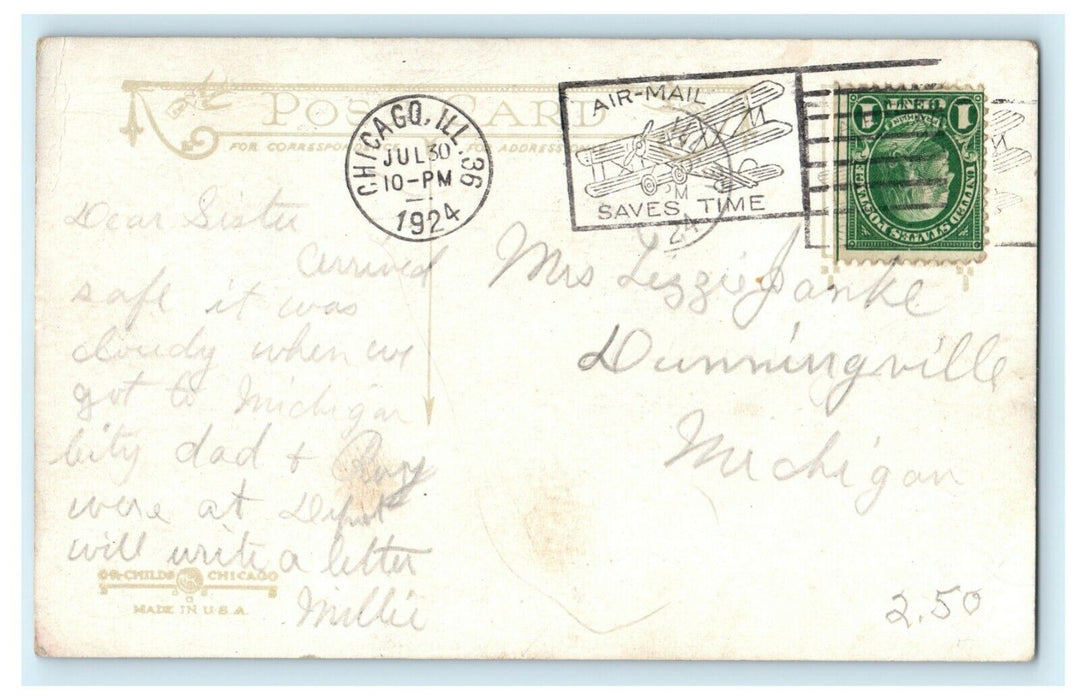 POST CARD
FOR CORRESPONDENCE FOR ADDRESS ONLY
CHICAGO, ILL. 36
JUL 30
10-PM
1924
AIR-MAIL
SAVES TIME
PM
24
1 CENT 1
UNITED STATES POSTAGE
Dear Sister
Arrived
safe it was
cloudy when we
got to Michigan
City dad + Roy
were at Depot
will write a letter
Millie
Mrs Lizzie Janke
Dunningville
Michigan
CHILDS CHICAGO
MADE IN U.S.A.
2.50